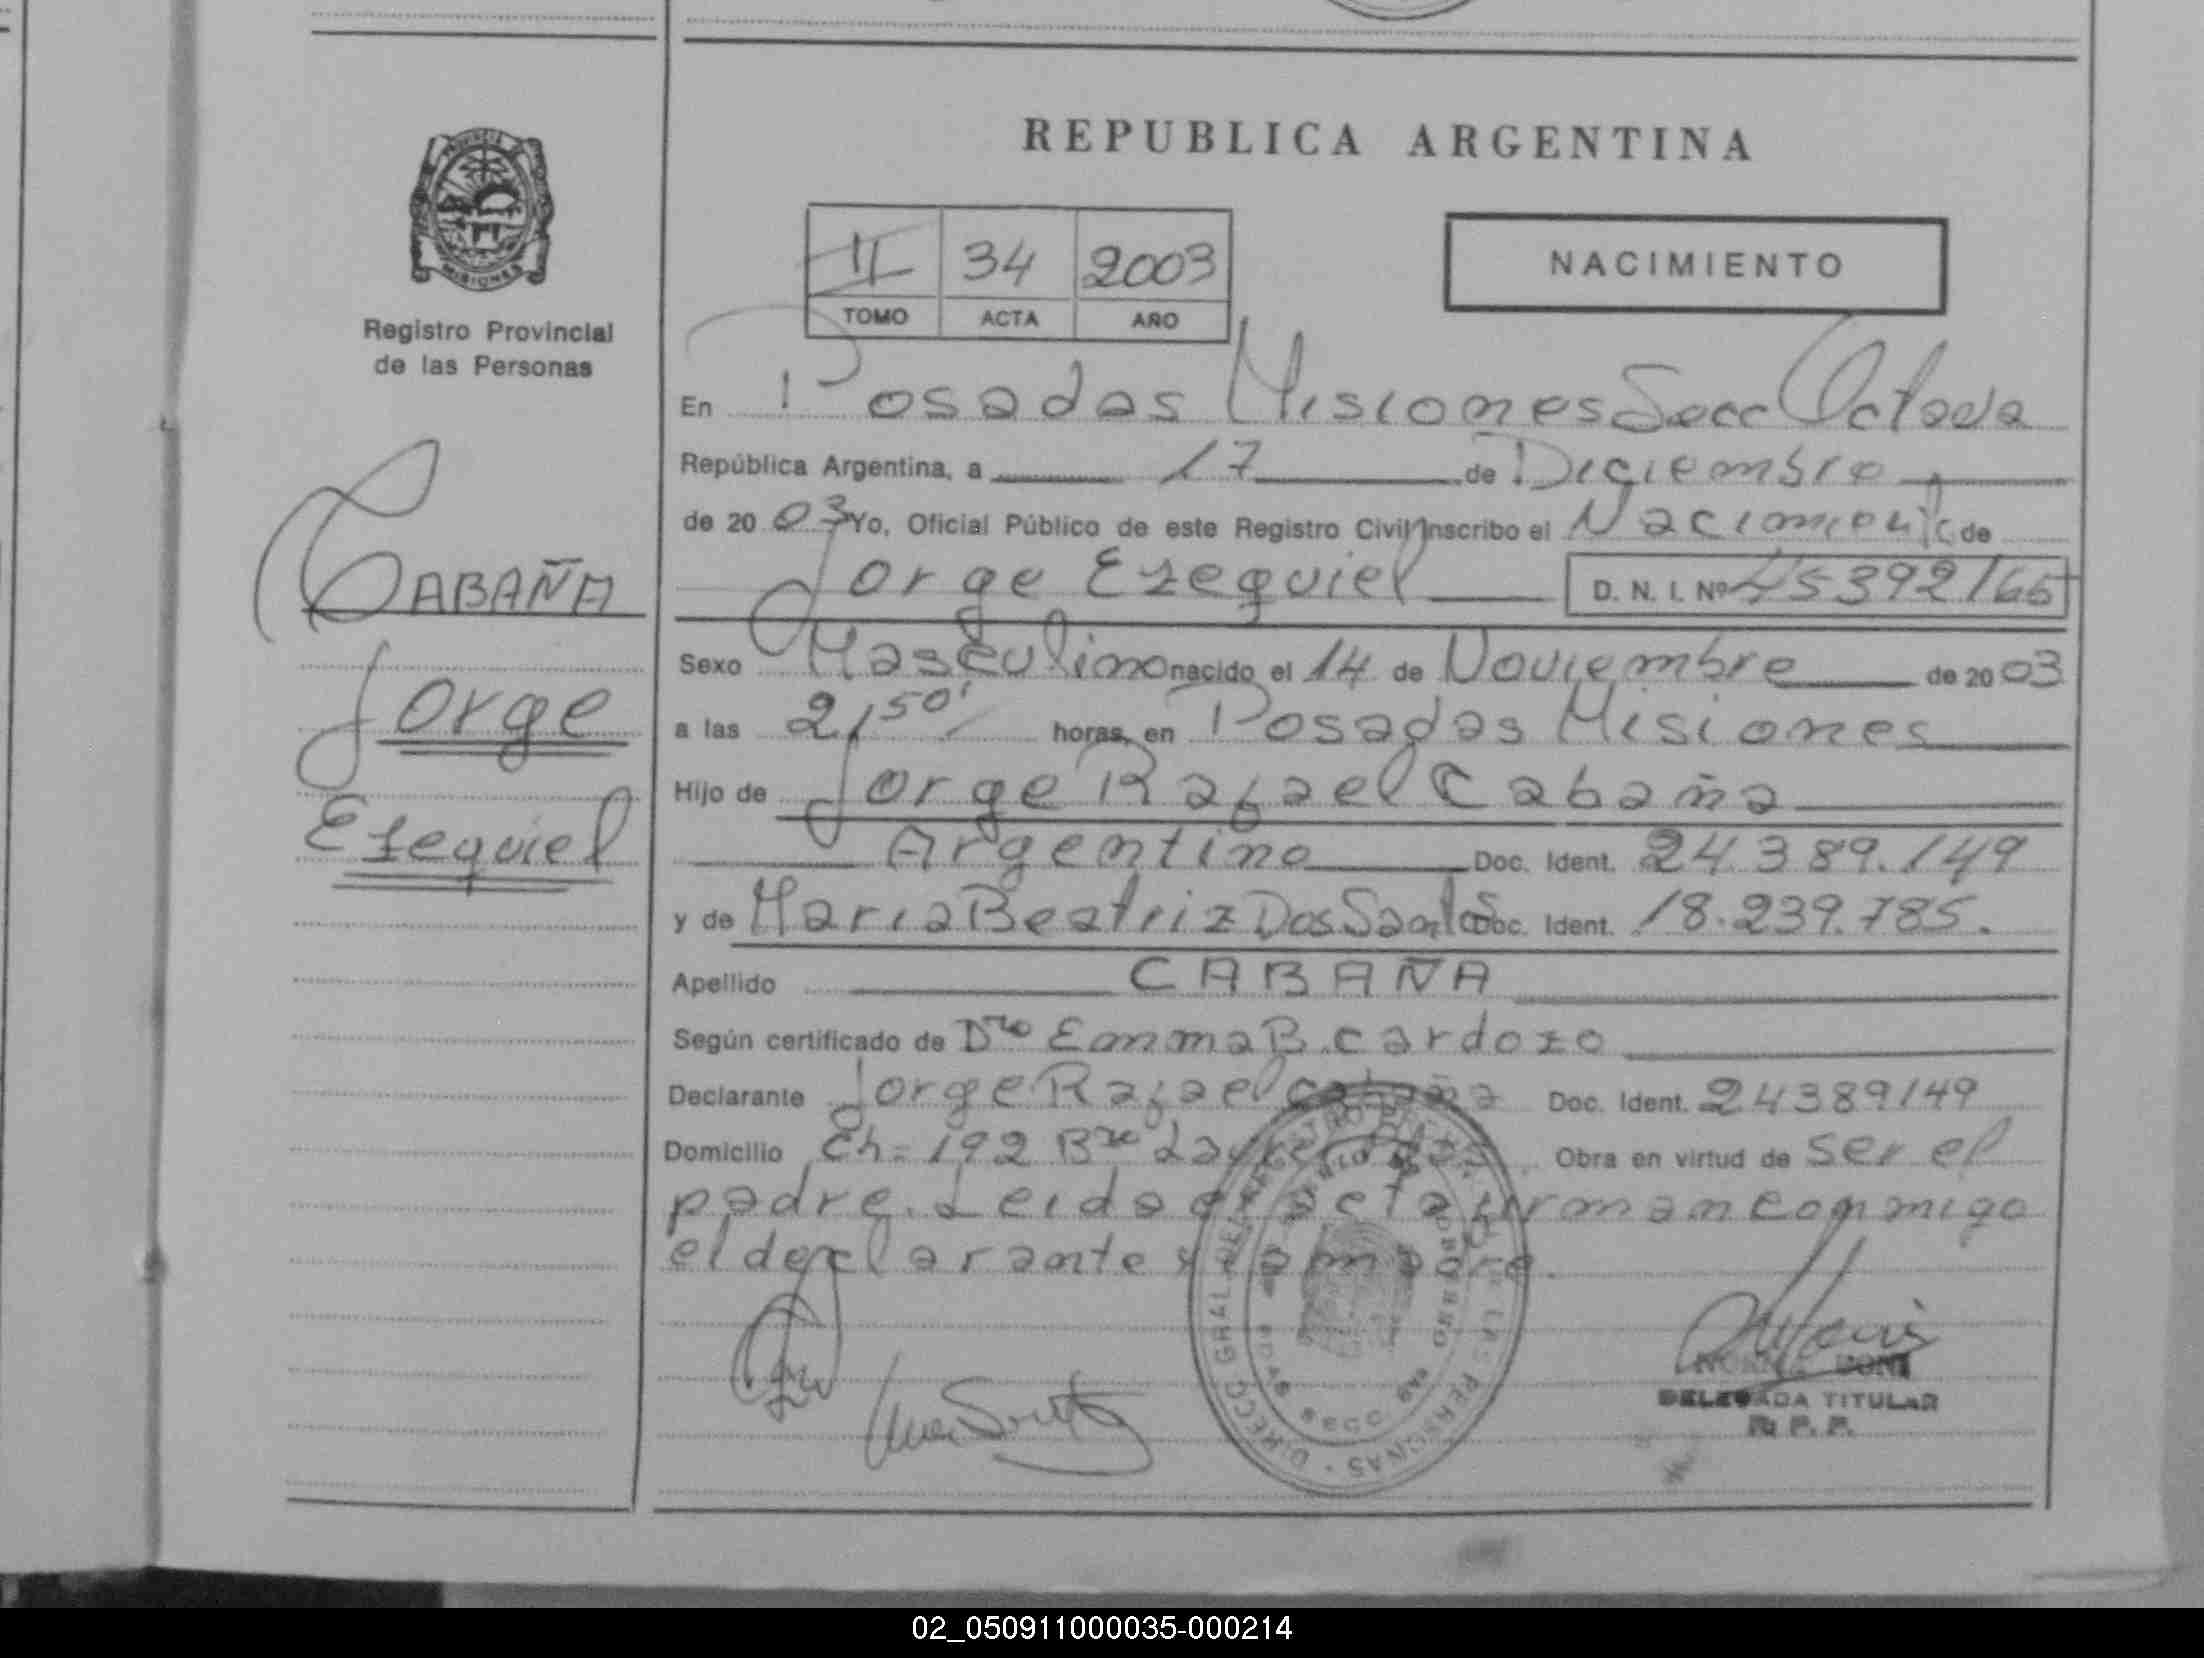 REPUBLICA ARGENTINA
PROVINCIA DE
MISIONES
Registro Provincial
de las Personas
CABAÑA
Jorge
Ezequiel
II 34 2003
TOMO ACTA AÑO
NACIMIENTO
En Posadas Misiones Secc Octava
República Argentina, a 17 de Diciembre
de 20 03 Yo, Oficial Público de este Registro Civil Inscribo el Nacimiento de
Jorge Ezequiel D. N. I. Nº 45392165
Sexo Masculino nacido el 14 de Noviembre de 20 03
a las 21,50' horas, en Posadas Misiones
Hijo de Jorge Rafael Cabaña
Argentino Doc. Ident. 24.389.149
y de Maria Beatriz Dos Santos Doc. Ident. 18.239.785.
Apellido CABAÑA
Según certificado de Dra Emma B. Cardozo
Declarante Jorge Rafael Cabaña Doc. Ident. 24389149
Domicilio Ch= 192 Bro Obra en virtud de ser el
padre. Leida el acta firman conmigo
el declarante y la madre.
DIRECC GRAL DEL REGISTRO DE LAS PERSONAS
DELEGADA TITULAR
R. P. P.
02_050911000035-000214